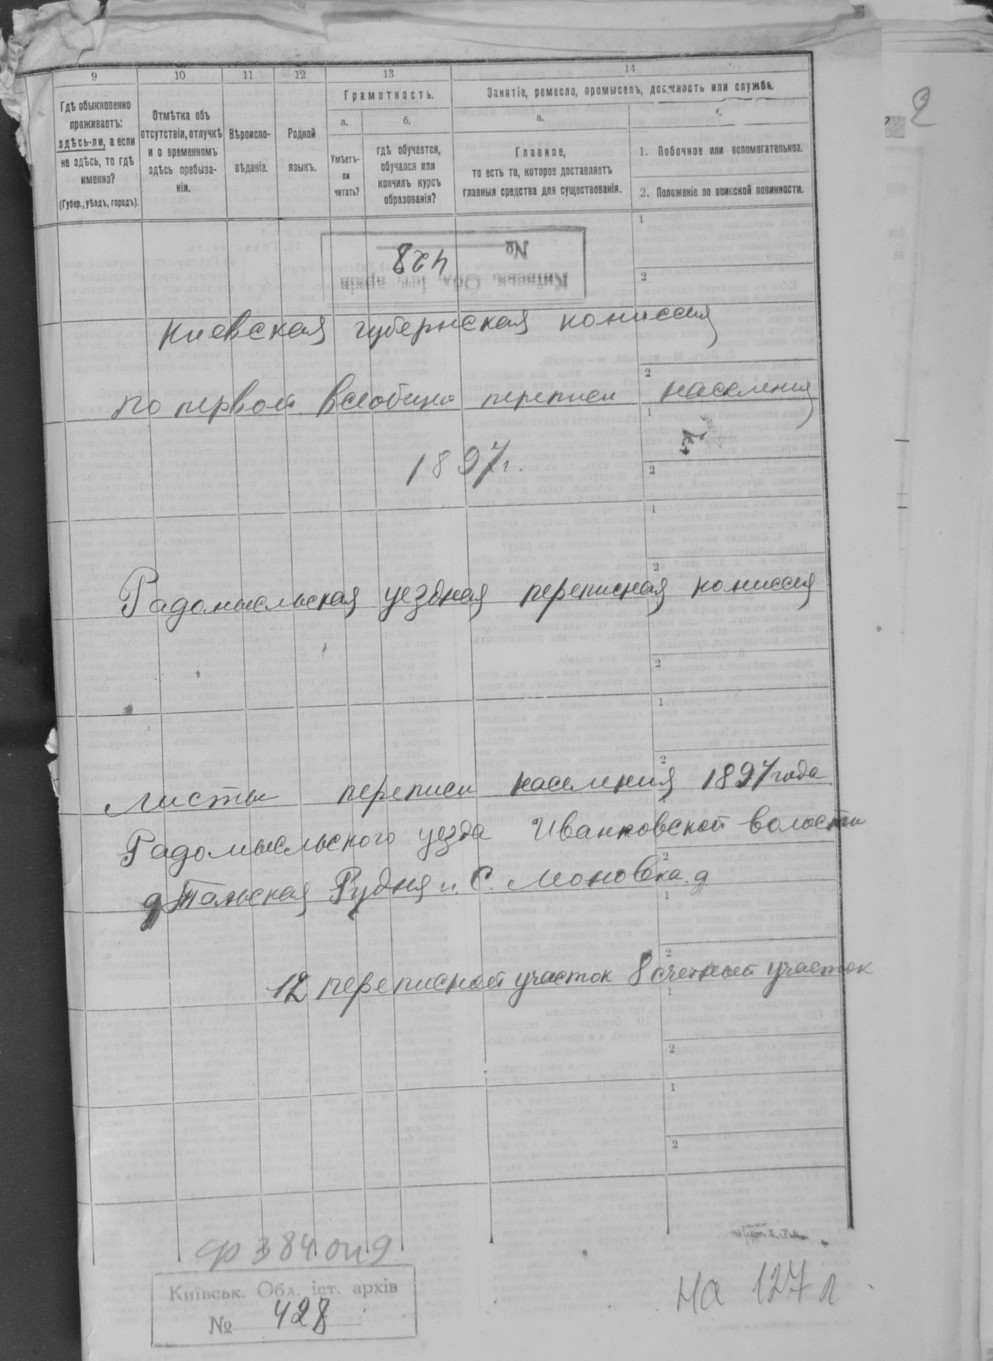 2
9 10 11 12 13 14
Гдѣ обыкновенно проживаетъ: здѣсь-ли, а если не здѣсь, то гдѣ именно?
(Губер., уѣздъ, городъ).
Отмѣтка объ отсутствіи, отлучкѣ и о временномъ здѣсь пребываніи.
Вѣроисповѣданіе.
Родной языкъ.
Грамотность.
а.
Умѣетъ-ли читать?
б.
гдѣ обучается, обучался или кончилъ курсъ образованія?
Занятіе, ремесло, промыселъ, должность или служба.
а.
Главное,
то есть то, которое доставляетъ
главныя средства для существованія.
1. Побочное или вспомогательное.
2. Положеніе по воинской повинности.
№ 428
Київськ. Обл. іст. архів
Киевская губернская комиссия
по первой всеобщей переписи населения
1897г.
Радомысльская уездная переписная комиссия
Листы переписи населения 1897 года
Радомысльского уезда Иванковской волости
д Тальская Рудня и с. Моновка д
12 переписной участок 8 счетный участок
ф 384 оп 9
Київськ. Обл. іст. архів
№ 428
на 127 л